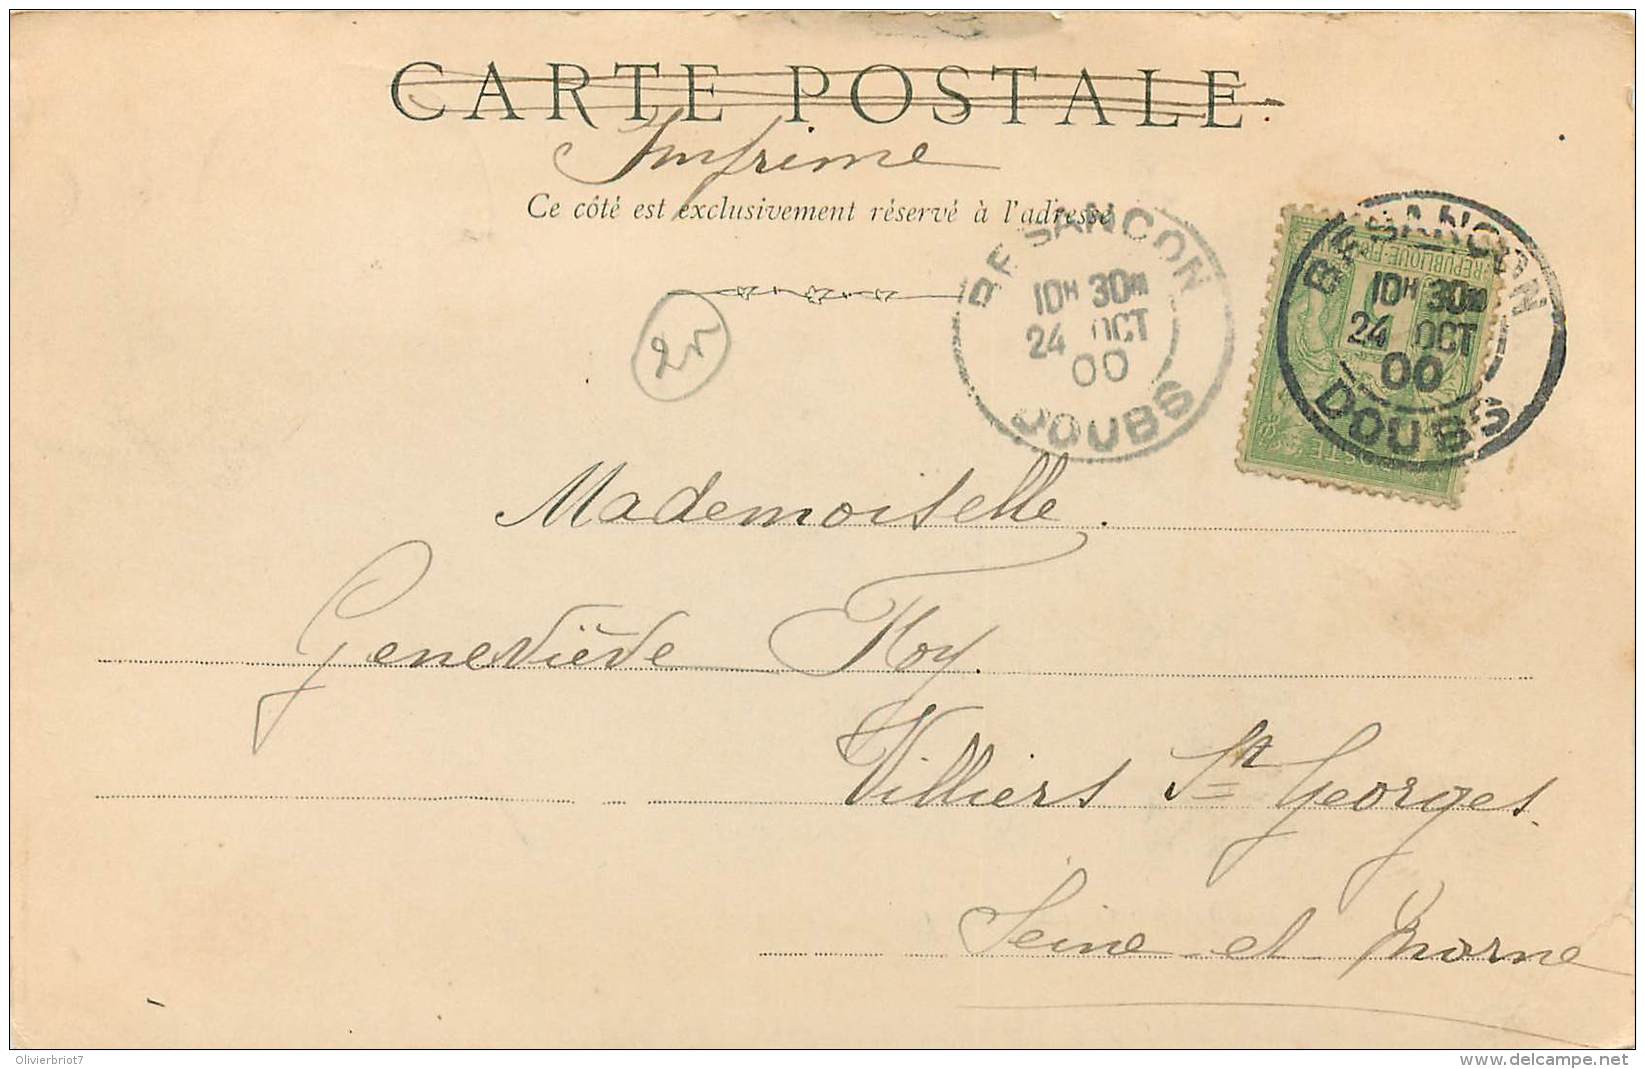 CARTE POSTALE
Imprime
Ce côté est exclusivement réservé à l'adresse
BESANCON
10H 30M
24 OCT
00
DOUBS
BESANCON
10H 30M
24 OCT
00
DOUBS
REPUBLIQUE
Mademoiselle.
Geneviève Roy.
Villiers St Georges
Seine-et Marne
Olivierbriot7
www.delcampe.net